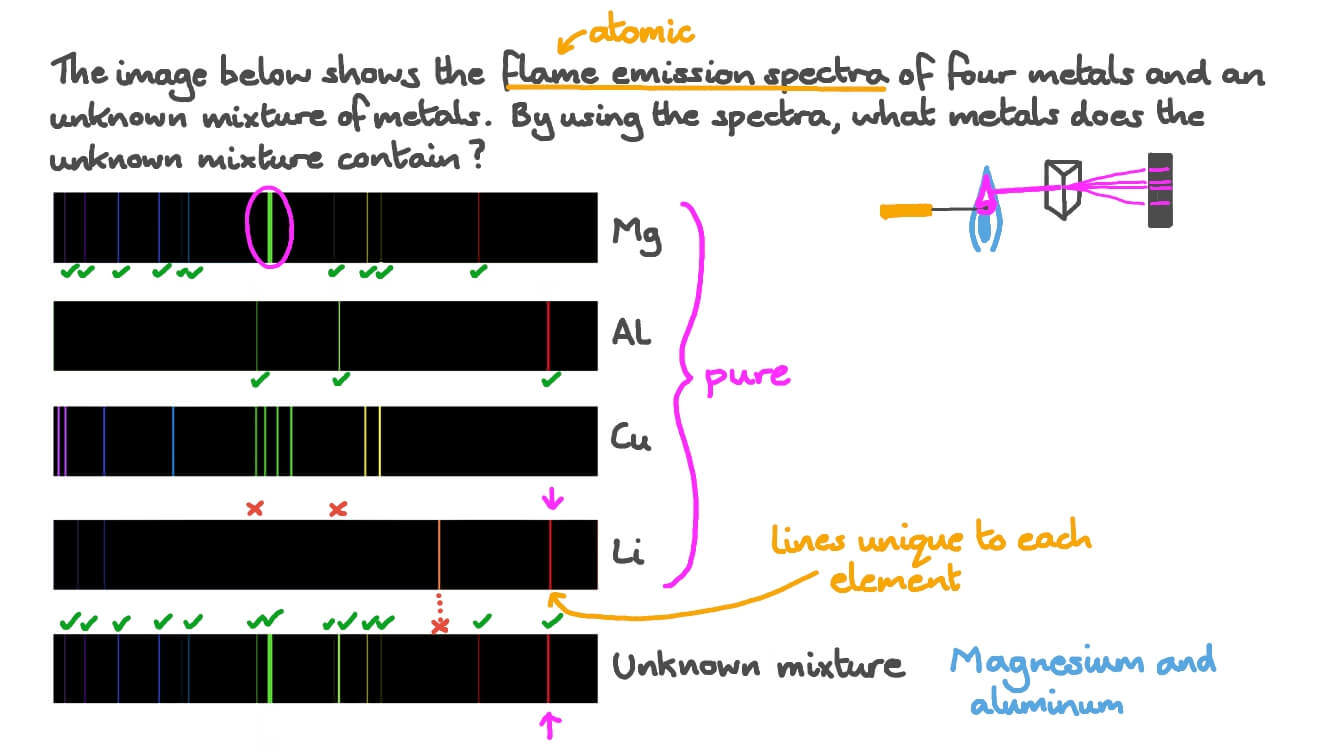 atomic
The image below shows the flame emission spectra of four metals and an
unknown mixture of metals. By using the spectra, what metals does the
unknown mixture contain?
Mg
Al
pure
Cu
Li
lines unique to each
element
Unknown mixture
Magnesium and
aluminum